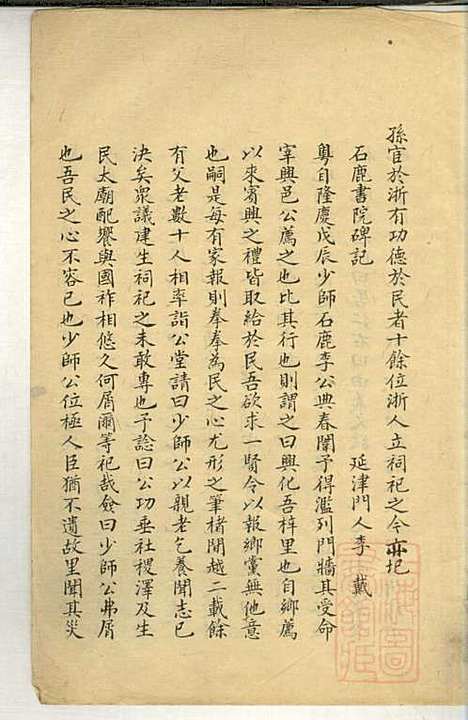 孫官於浙有功德於民者十餘位浙人立祠祀之今亦圮
石鹿書院碑記 延津門人李 戴
粵自隆慶戊辰少師石鹿李公典春闈予得濫列門牆其受命
宰興邑公薦之也比其行也則謂之曰興化吾梓里也自鄉薦
以來賓興之禮皆取給於民吾欲求一賢令以報鄉黨無他意
也嗣是每有家報則拳拳為民之心尤形之筆楮間越二載餘
有父老數十人相率詣公堂請曰少師公以親老乞養聞志已
決矣眾議建生祠祀之未敢專也予諗曰公功垂社稷澤及生
民太廟配饗與國祚相悠久何屑爾等祀哉僉曰少師公弗屑
也吾民之心不容已也少師公位極人臣猶不遺故里聞其災